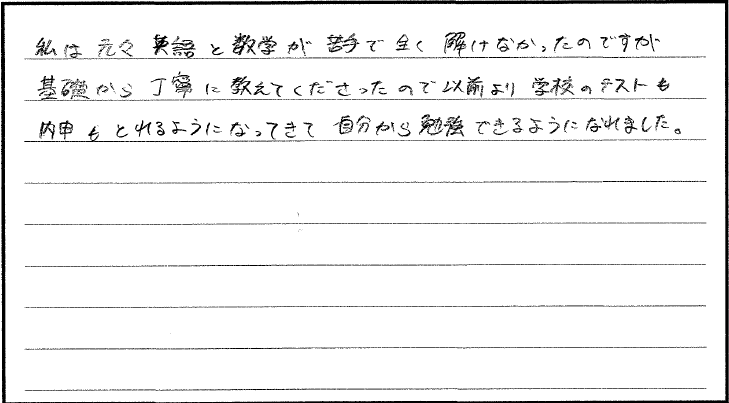 私は元々英語と数学が苦手で全く解けなかったのですが
基礎から丁寧に教えてくださったので以前より学校のテストも
内申もとれるようになってきて自分から勉強できるようになれました。